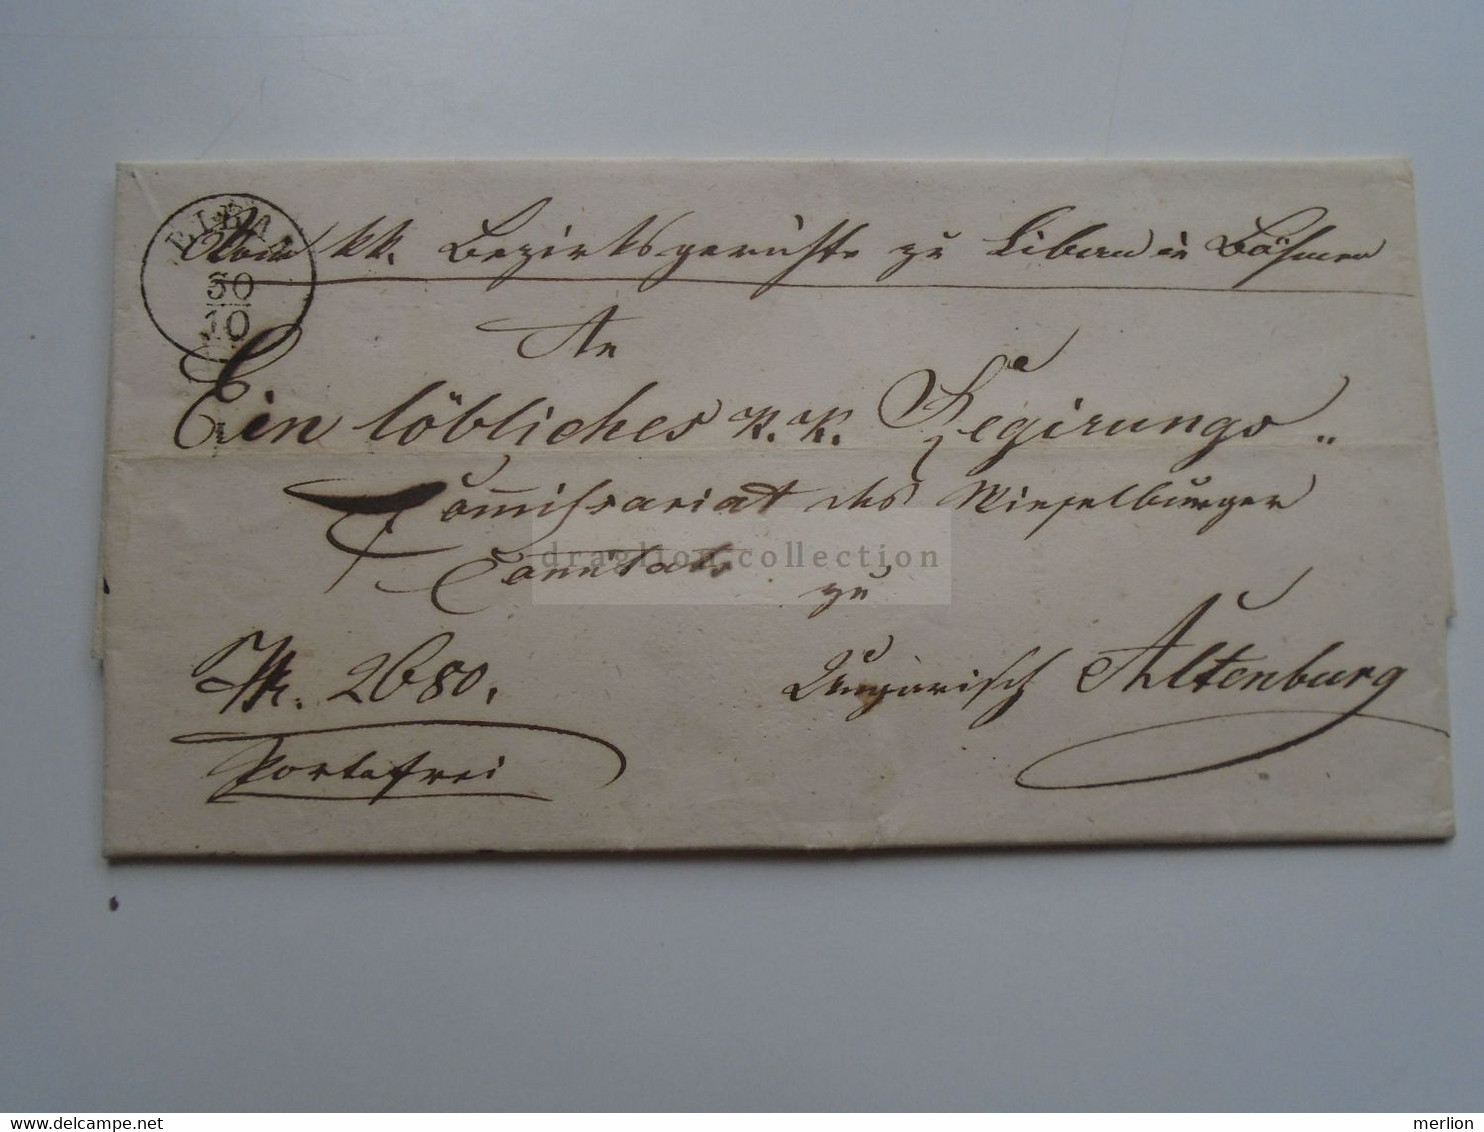 30
10
Vom k.k. Bezirksgerichte zu Libau in Böhmen
An
Ein löbliches k.k. Regirungs„
Commissariat des Wieselburger
Comitats
zu
Ungarisch Altenburg
N. 2680.
Portofrei
draglion.collection
www.delcampe.net
merlion